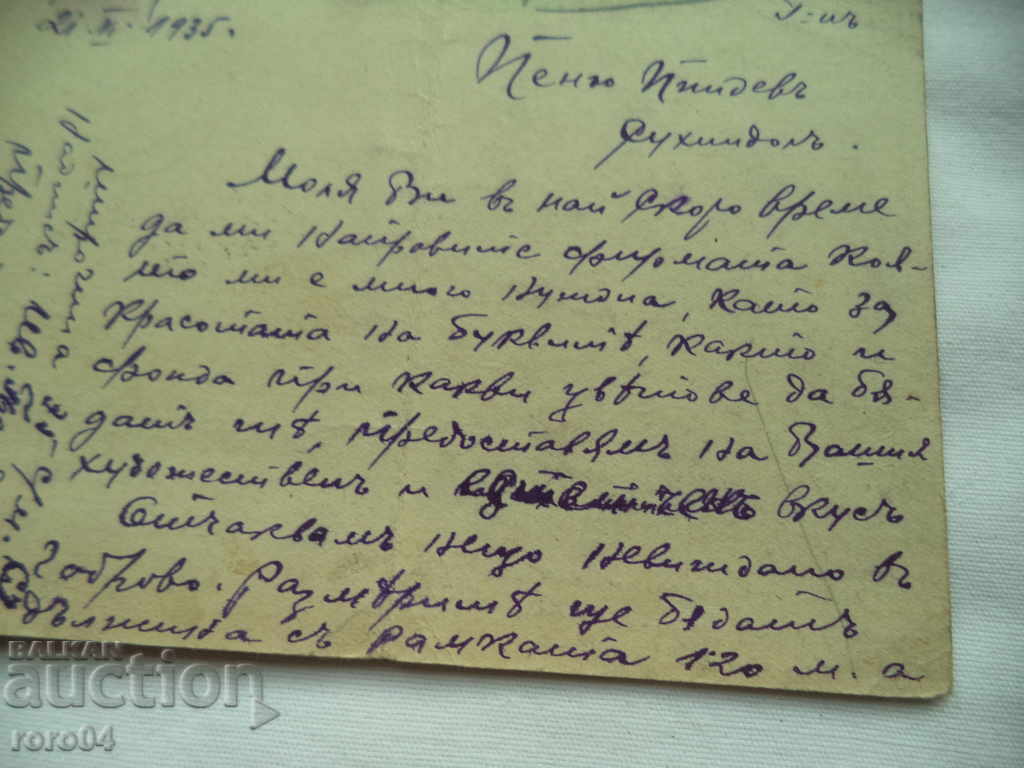 21 VI 1935.
Г-нъ
Пеню
Сухиндолъ.
Моля Ви въ най скоро време
да ми направите фирмата коя-
то ми е много нуждна, като за
красотата на буквитѣ, както и
фонда при какви цвѣтове да бѫ-
датъ тѣ, предоставямъ на Вашия
художественъ и вкусъ
Отчаквамъ нещо невиждано въ
Габрово. Размѣритѣ ще бѫдатъ
дължина съ рамката 1·20 м. а
BALKAN
auction
roro04